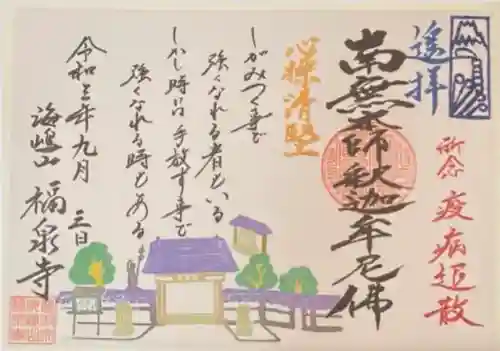 遙拝
所念 疫病退散
南無本師釈迦牟尼佛
心操清堅
しがみつく事で
強くなれる者もいる
しかし時は手放す事で
強くなれる時もある
令和三年九月三日
海嶋山 福泉寺